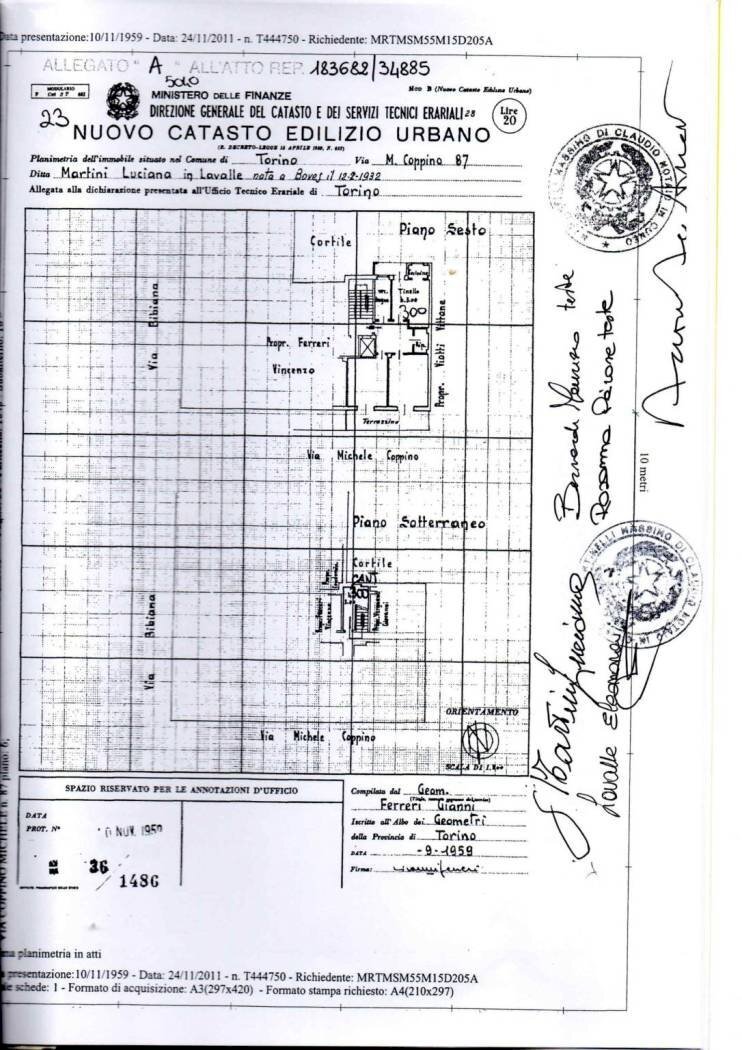 Data presentazione:10/11/1959 - Data: 24/11/2011 - n. T444750 - Richiedente: MRTMSM55M15D205A
ALLEGATO " A " ALL'ATTO REP. 183682/34885
MODULARIO
MINISTERO DELLE FINANZE
MOD B (Nuovo Catasto Edilizio Urbano)
DIREZIONE GENERALE DEL CATASTO E DEI SERVIZI TECNICI ERARIALI
Lire
20
23
NUOVO CATASTO EDILIZIO URBANO
Planimetria dell'immobile situato nel Comune di Torino Via M. Coppino 87
Ditta Martini Luciana in Lavalle nata a Boves il 12-2-1932
Allegata alla dichiarazione presentata all'Ufficio Tecnico Erariale di Torino
Piano Sesto
Cortile
Tinello
300
Via Bibiana
Propr. Ferreri
Vincenzo
Propr. Viotti Vittone
Terrazzino
Via Michele Coppino
10 metri
Piano Sotterraneo
Cortile
CANT
300
Via Bibiana
Via Michele Coppino
ORIENTAMENTO
SCALA DI 1:200
SPAZIO RISERVATO PER LE ANNOTAZIONI D'UFFICIO
DATA
PROT. N°
NOV. 1959
36
1486
Compilata dal Geom.
Ferreri Gianni
Iscritto all'Albo dei Geometri
della Provincia di Torino
DATA -9-1959
Firma:
VIA COPPINO MICHELE n. 87 piano: 6;
planimetria in atti
presentazione:10/11/1959 - Data: 24/11/2011 - n. T444750 - Richiedente: MRTMSM55M15D205A
schede: 1 - Formato di acquisizione: A3(297x420) - Formato stampa richiesto: A4(210x297)